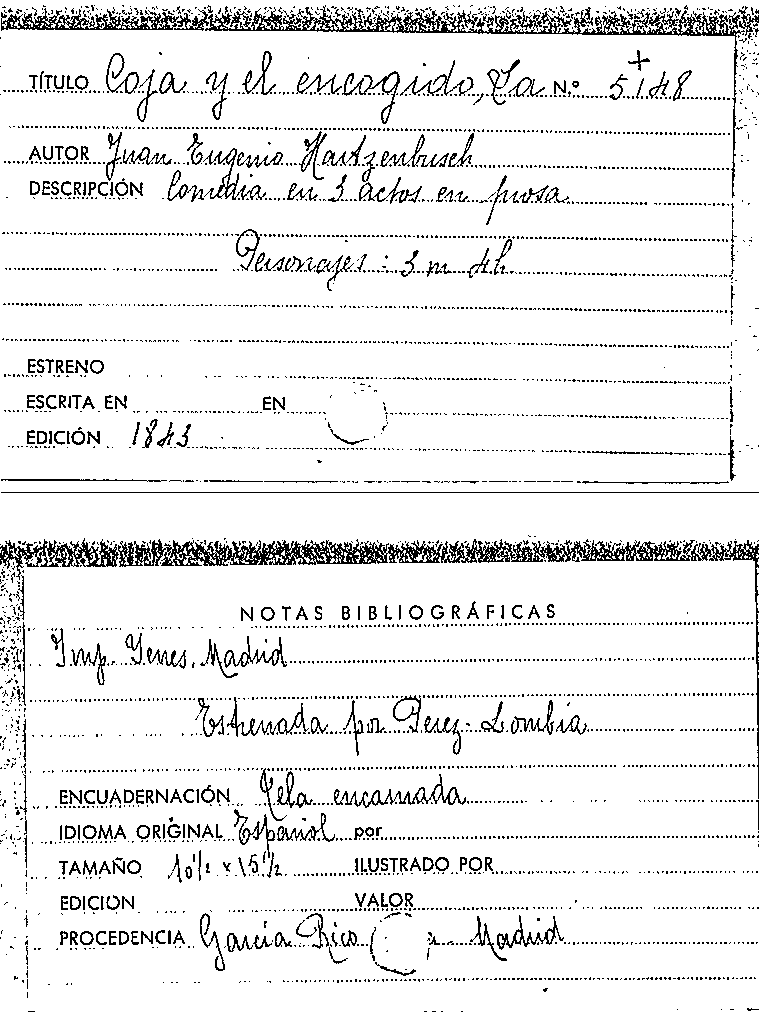 TÍTULO Coja y el encogido, La N.º 5148
+
AUTOR Juan Eugenio Hartzenbusch
DESCRIPCIÓN Comedia en 3 actos en prosa
Personajes: 3 m 4h
ESTRENO
ESCRITA EN EN
EDICIÓN 1843
NOTAS BIBLIOGRÁFICAS
Imp. Yenes. Madrid
Estrenada por Perez-Lombía
ENCUADERNACIÓN Tela encarnada
IDIOMA ORIGINAL Español por
TAMAÑO 10½ x 15½ ILUSTRADO POR
EDICION VALOR
PROCEDENCIA García Rico Madrid